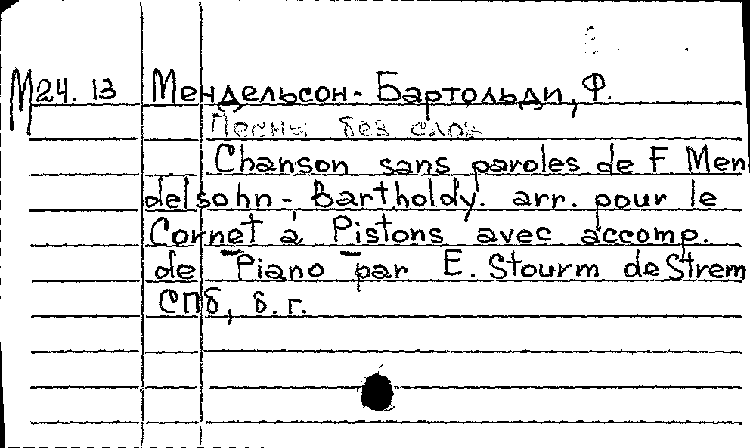 М24.13 Мендельсон-Бартольди, Ф.
Песны без слов
Chanson sans paroles de F. Men
delsohn-Bartholdy. arr. pour le
Cornet à Pistons avec accomp.
de Piano par E. Stourm de Strem
СПб, б. г.